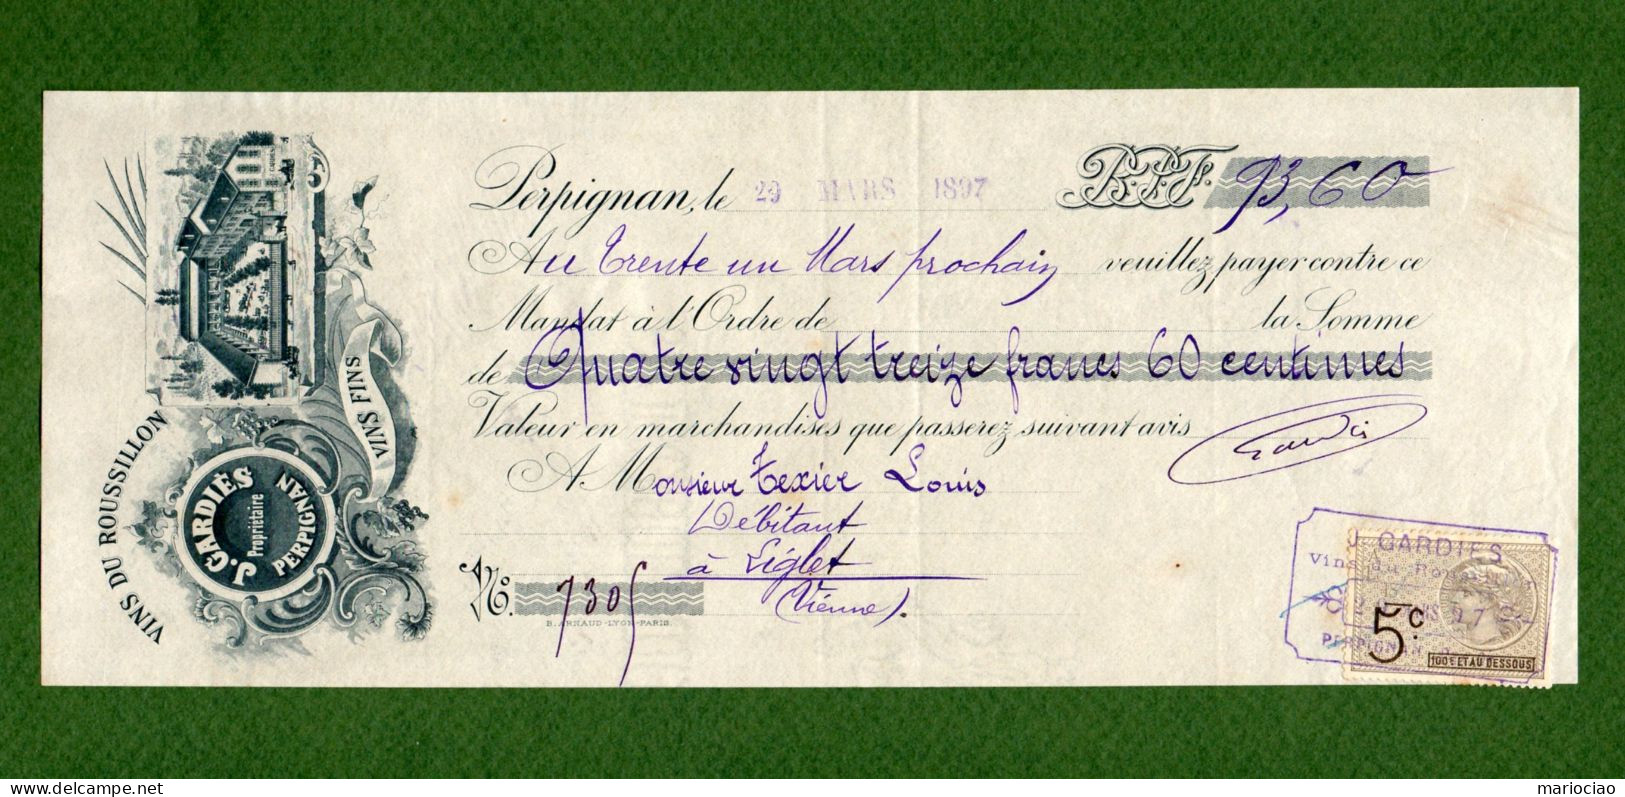 VINS DU ROUSSILLON
VINS FINS
J. GARDIES
Propriétaire
PERPIGNAN
Perpignan, le 29 MARS 1897 B.P.F. 93,60
Au trente un Mars prochain veuillez payer contre ce
Mandat à l'Ordre de la Somme
de Quatre vingt treize francs 60 centimes
Valeur en marchandises que passerez suivant avis
Gardies
A Monsieur Texier Louis
Débitant
à Liglet
(Vienne).
No. 7305
B. ARNAUD-LYON-PARIS.
J GARDIES
Vins du Roussillon
PERPIGNAN
5c.
100F ET AU DESSOUS
delcampe.net
mariociao